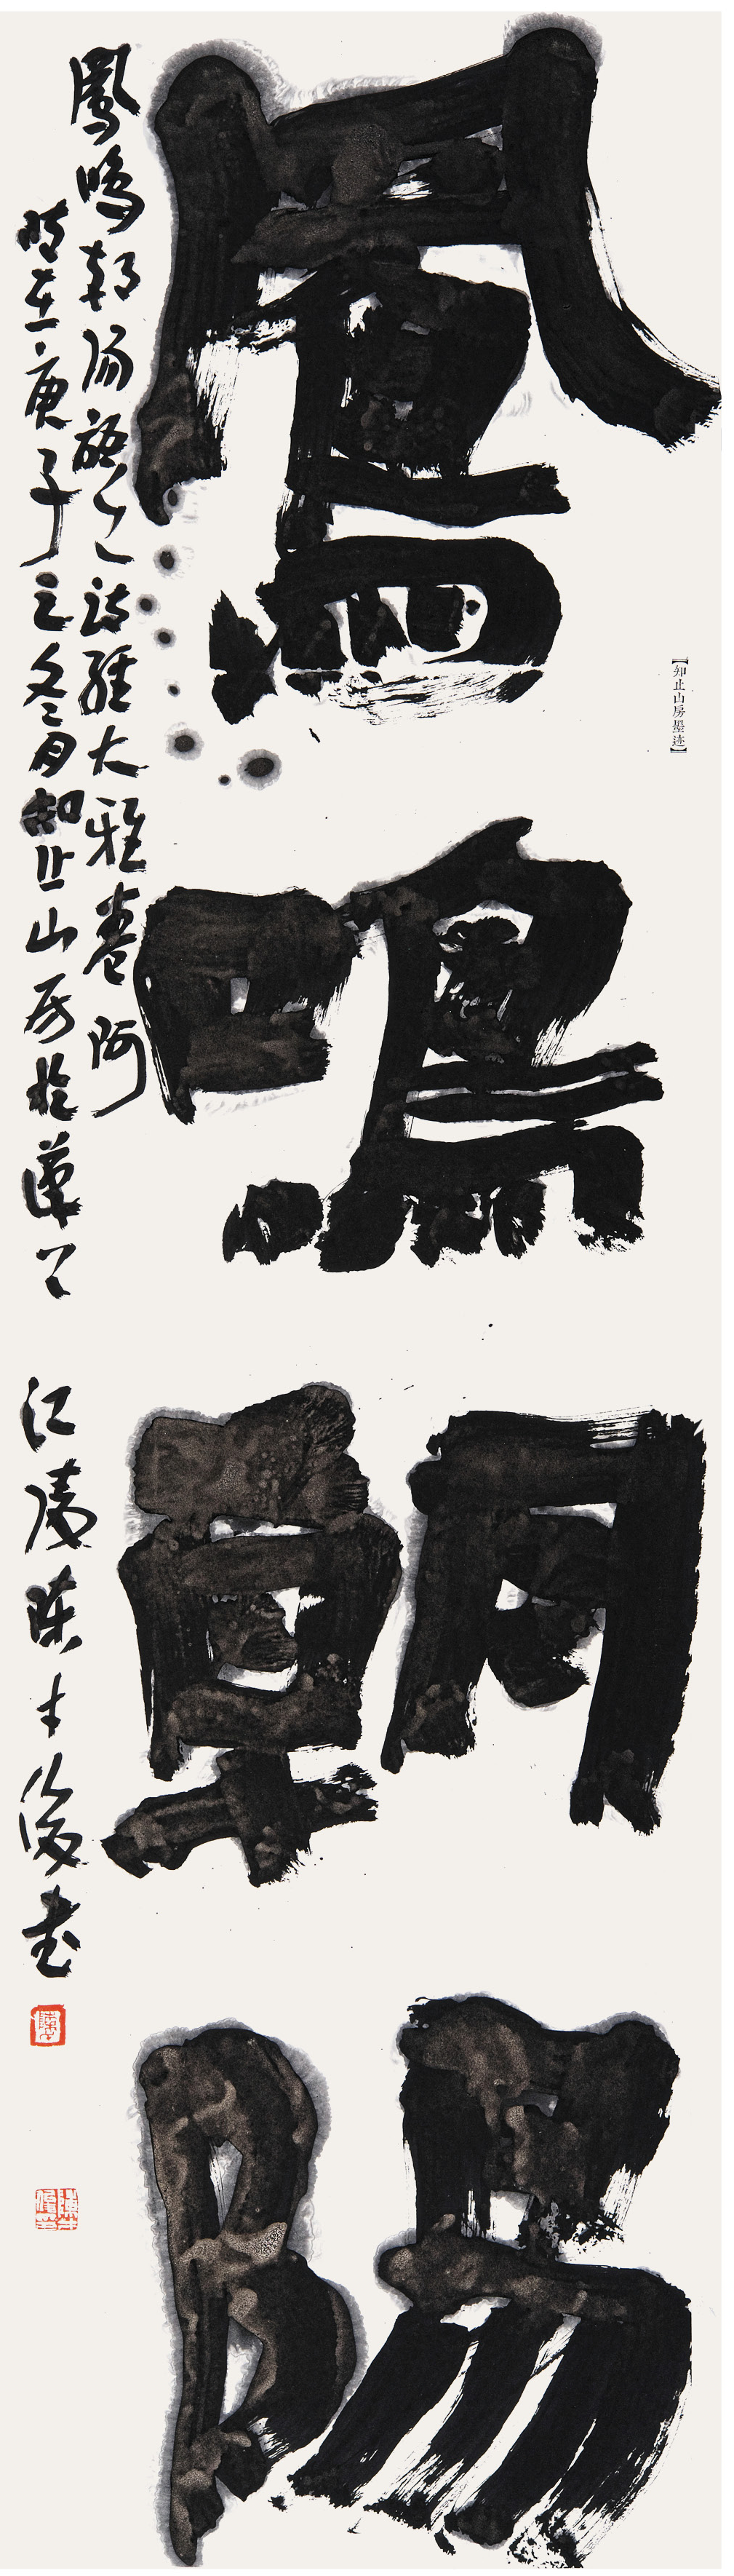 【知止山房墨迹】
鳳鳴朝陽
鳳鳴朝陽語出詩經大雅卷阿
時在庚子之冬月知止山房於 江陵陳士俊書